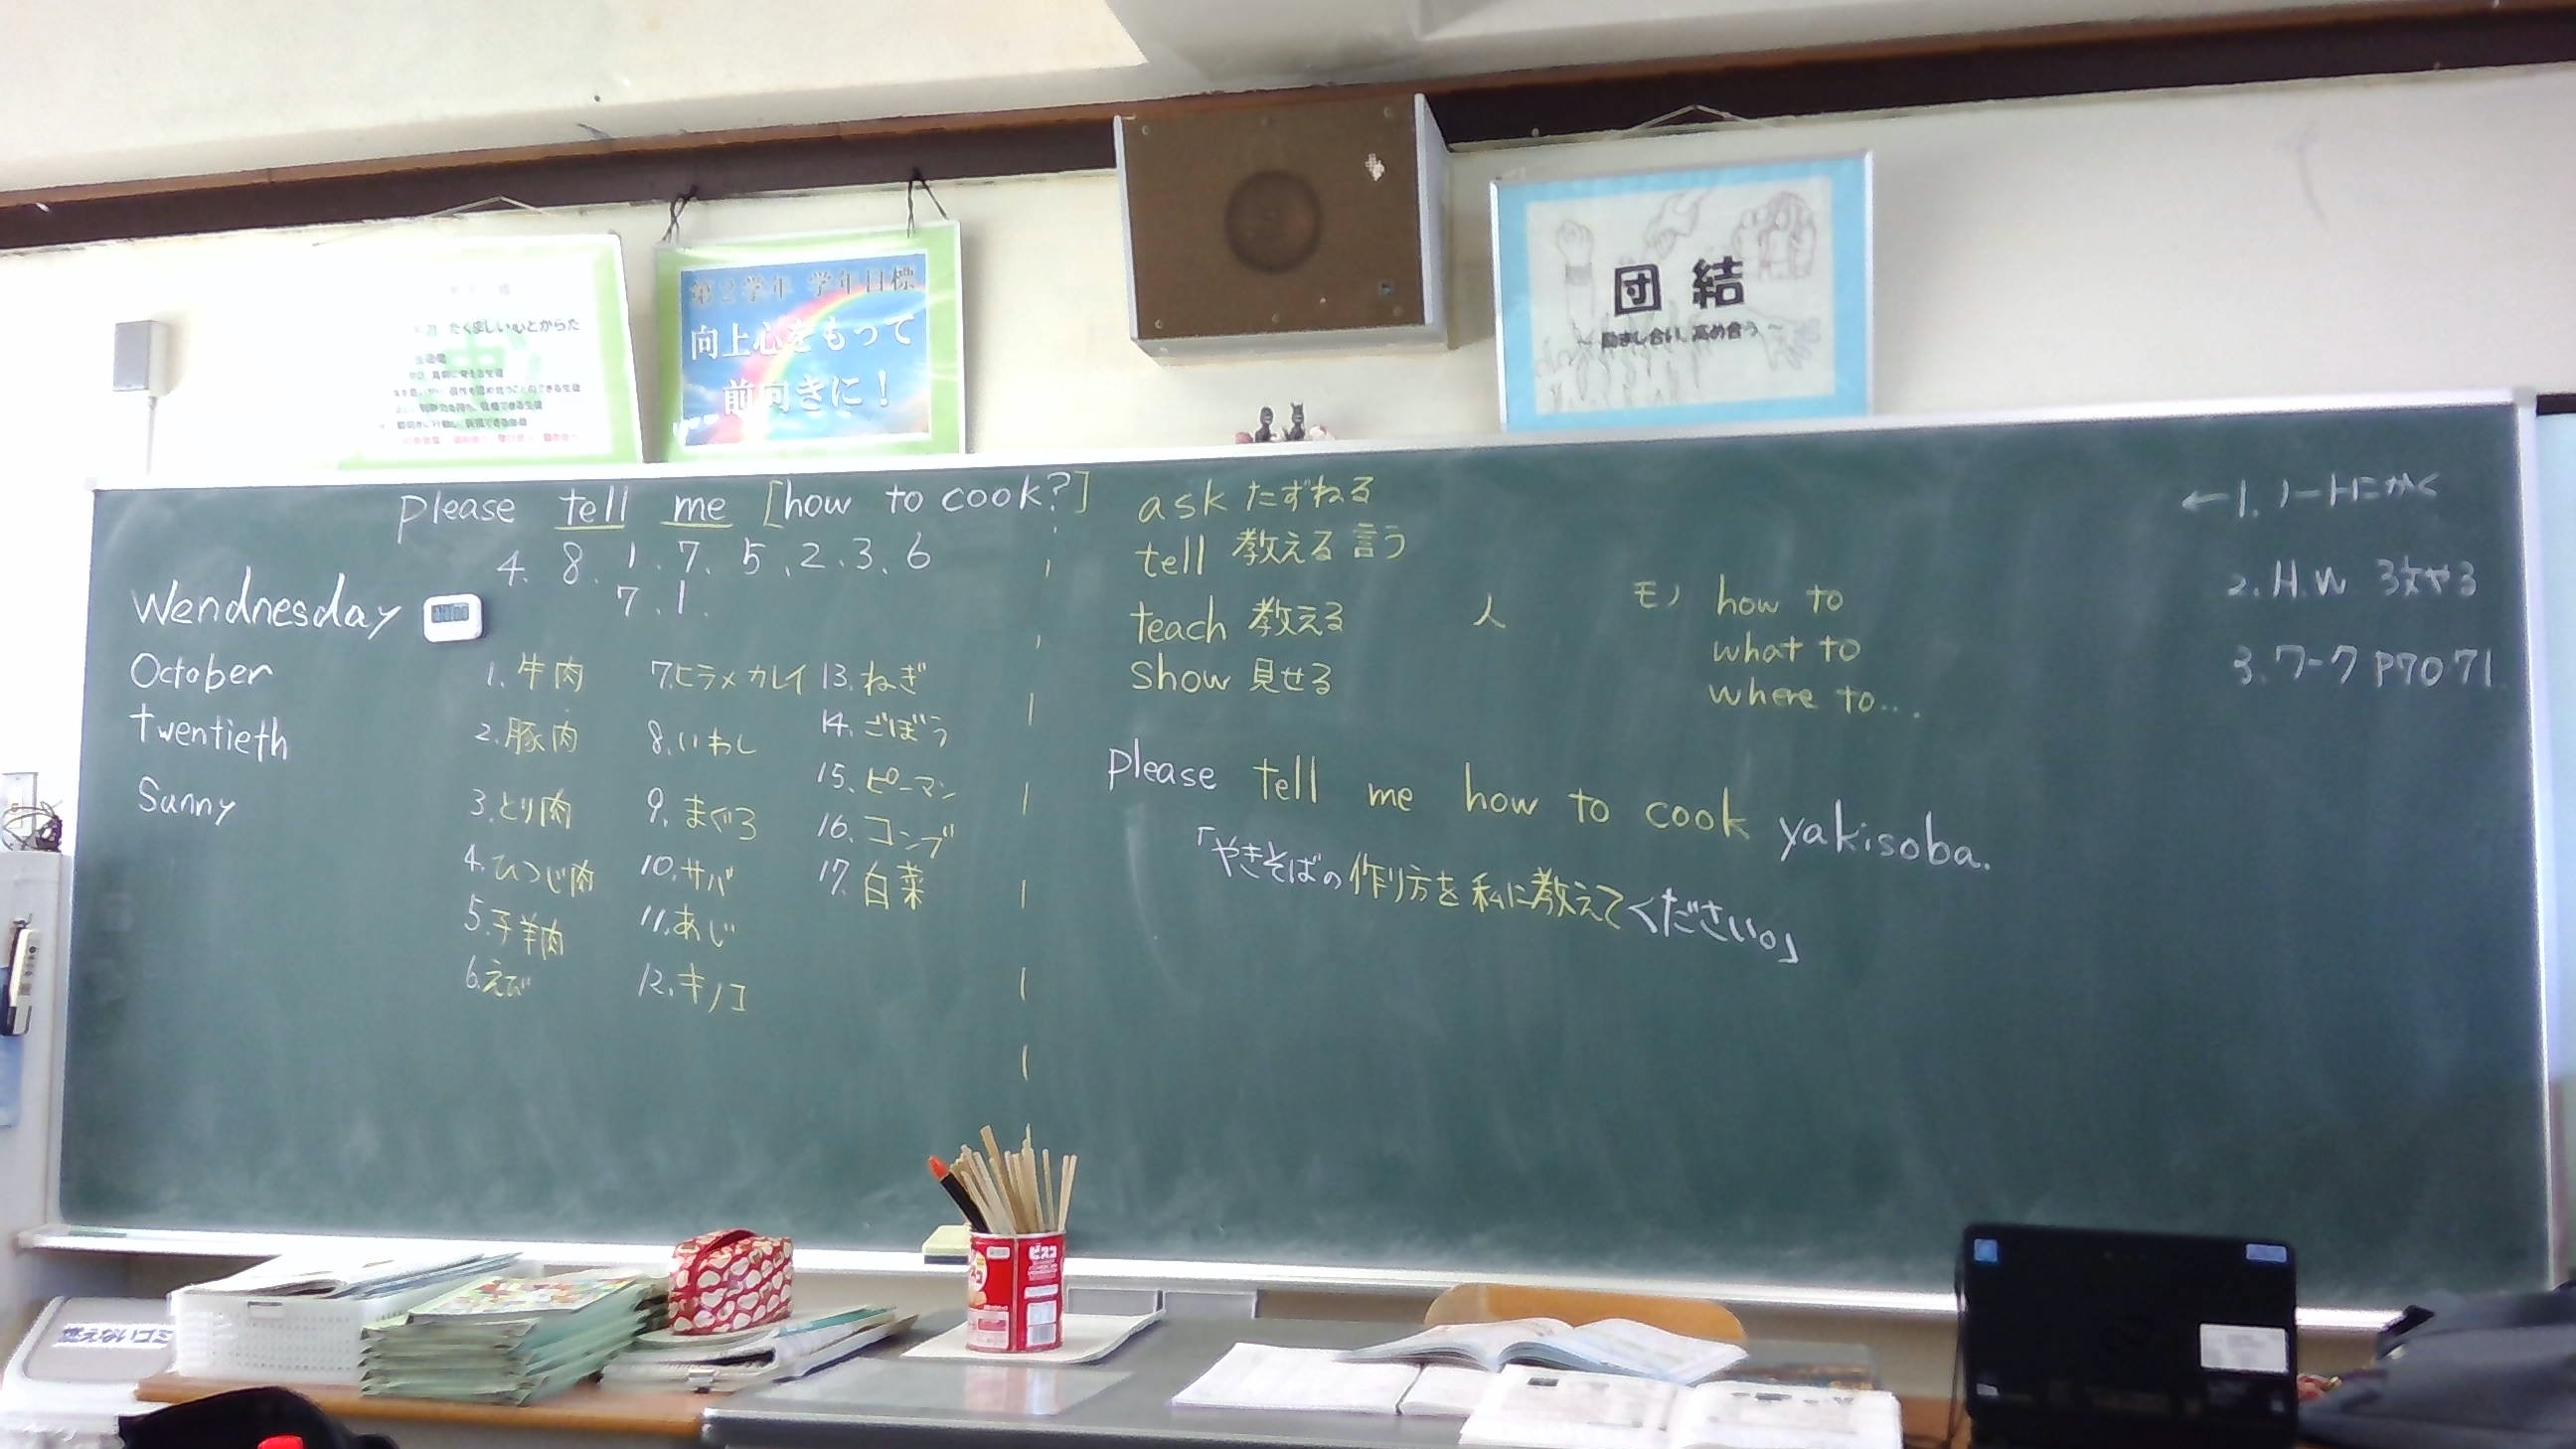 たくましい心とからだ
第2学年 学年目標
向上心をもって
前向きに!
団結
~励まし合い、高め合う~
please tell me [how to cook?]
4. 8. 1. 7. 5. 2. 3. 6
7. 1.
Wendnesday
October
twentieth
Sunny
1. 牛肉
2. 豚肉
3. とり肉
4. ひつじ肉
5. 子羊肉
6. えび
7. ヒラメ カレイ
8. いわし
9. まぐろ
10. サバ
11. あじ
12. キノコ
13. ねぎ
14. ごぼう
15. ピーマン
16. コンブ
17. 白菜
ask たずねる
tell 教える 言う
teach 教える
show 見せる
人
モノ how to
what to
where to...
please tell me how to cook yakisoba.
「やきそばの作り方を私に教えてください。」
←1. ノートにかく
2. H.W 3文やる
3. ワーク P70 71
ビスコ